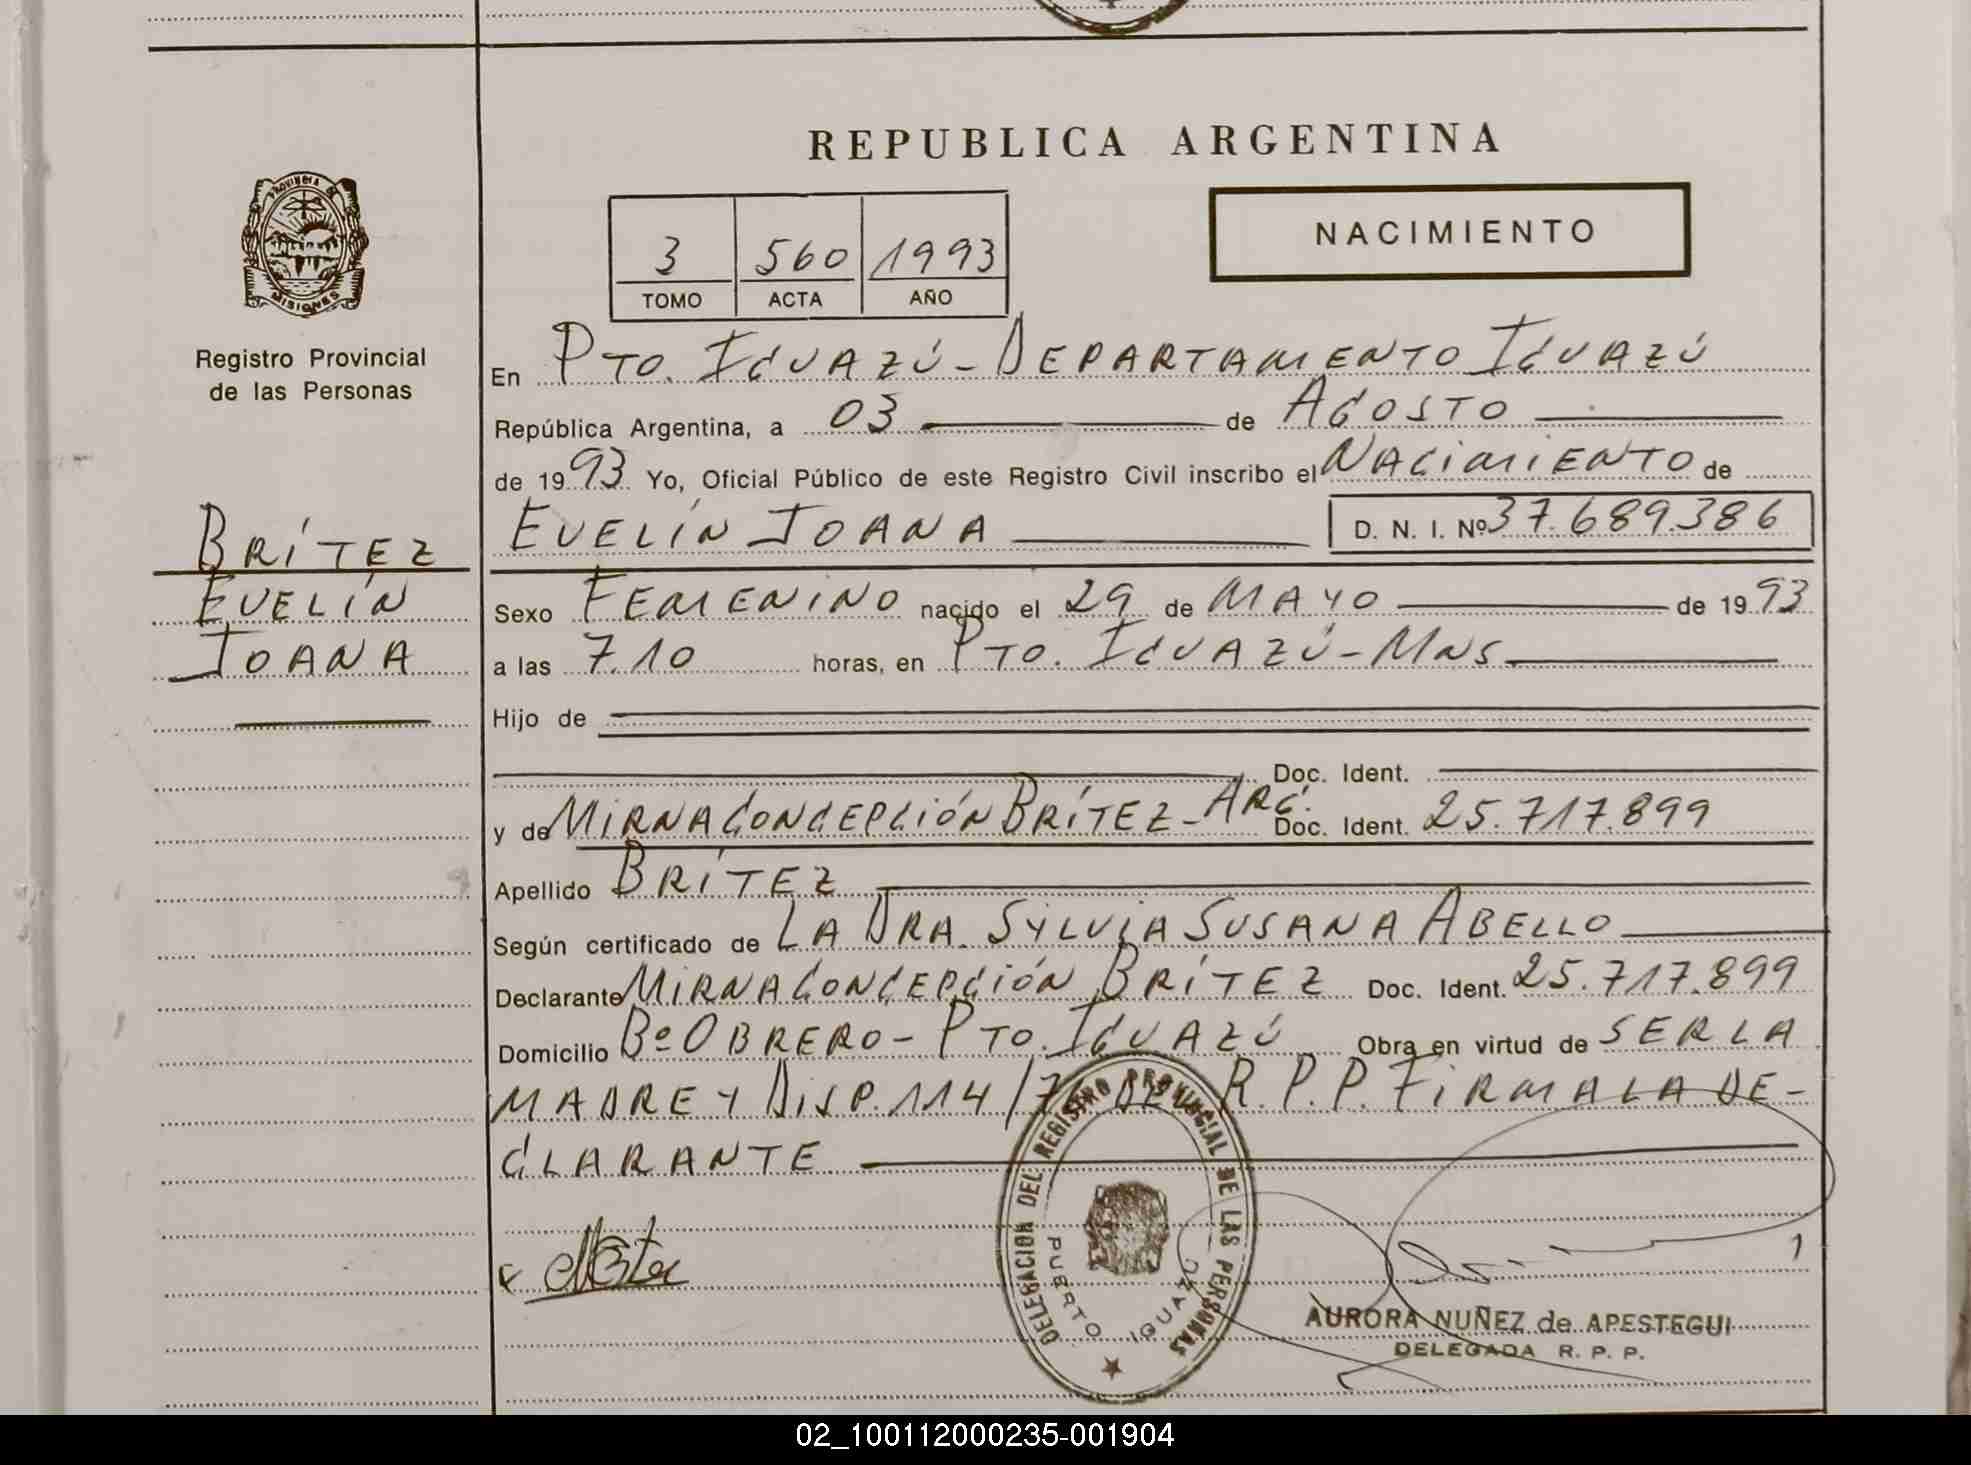 REPUBLICA ARGENTINA
PROVINCIA DE
MISIONES
Registro Provincial
de las Personas
3 560 1993
TOMO ACTA AÑO
NACIMIENTO
En PTO. IGUAZÚ - DEPARTAMENTO IGUAZÚ
República Argentina, a 03 de AGOSTO
de 1993 Yo, Oficial Público de este Registro Civil inscribo el NACIMIENTO de
EVELÍN JOANA D. N. I. Nº 37.689.386
BRÍTEZ
EVELÍN
JOANA
Sexo FEMENINO nacido el 29 de MAYO de 1993
a las 7.10 horas, en PTO. IGUAZÚ - MNS
Hijo de
Doc. Ident.
y de MIRNA CONCEPCIÓN BRÍTEZ - ARG. Doc. Ident. 25.717.899
Apellido BRÍTEZ
Según certificado de LA DRA. SYLVIA SUSANA ABELLO
Declarante MIRNA CONCEPCIÓN BRÍTEZ Doc. Ident. 25.717.899
Domicilio Bº OBRERO - PTO. IGUAZÚ Obra en virtud de SER LA
MADRE Y DISP. 114/ R.P.P. FIRMA LA DE-
CLARANTE
DELEGACION DEL REGISTRO PROVINCIAL DE LAS PERSONAS
PUERTO IGUAZU
AURORA NUÑEZ de APESTEGUI
DELEGADA R. P. P.
02_100112000235-001904